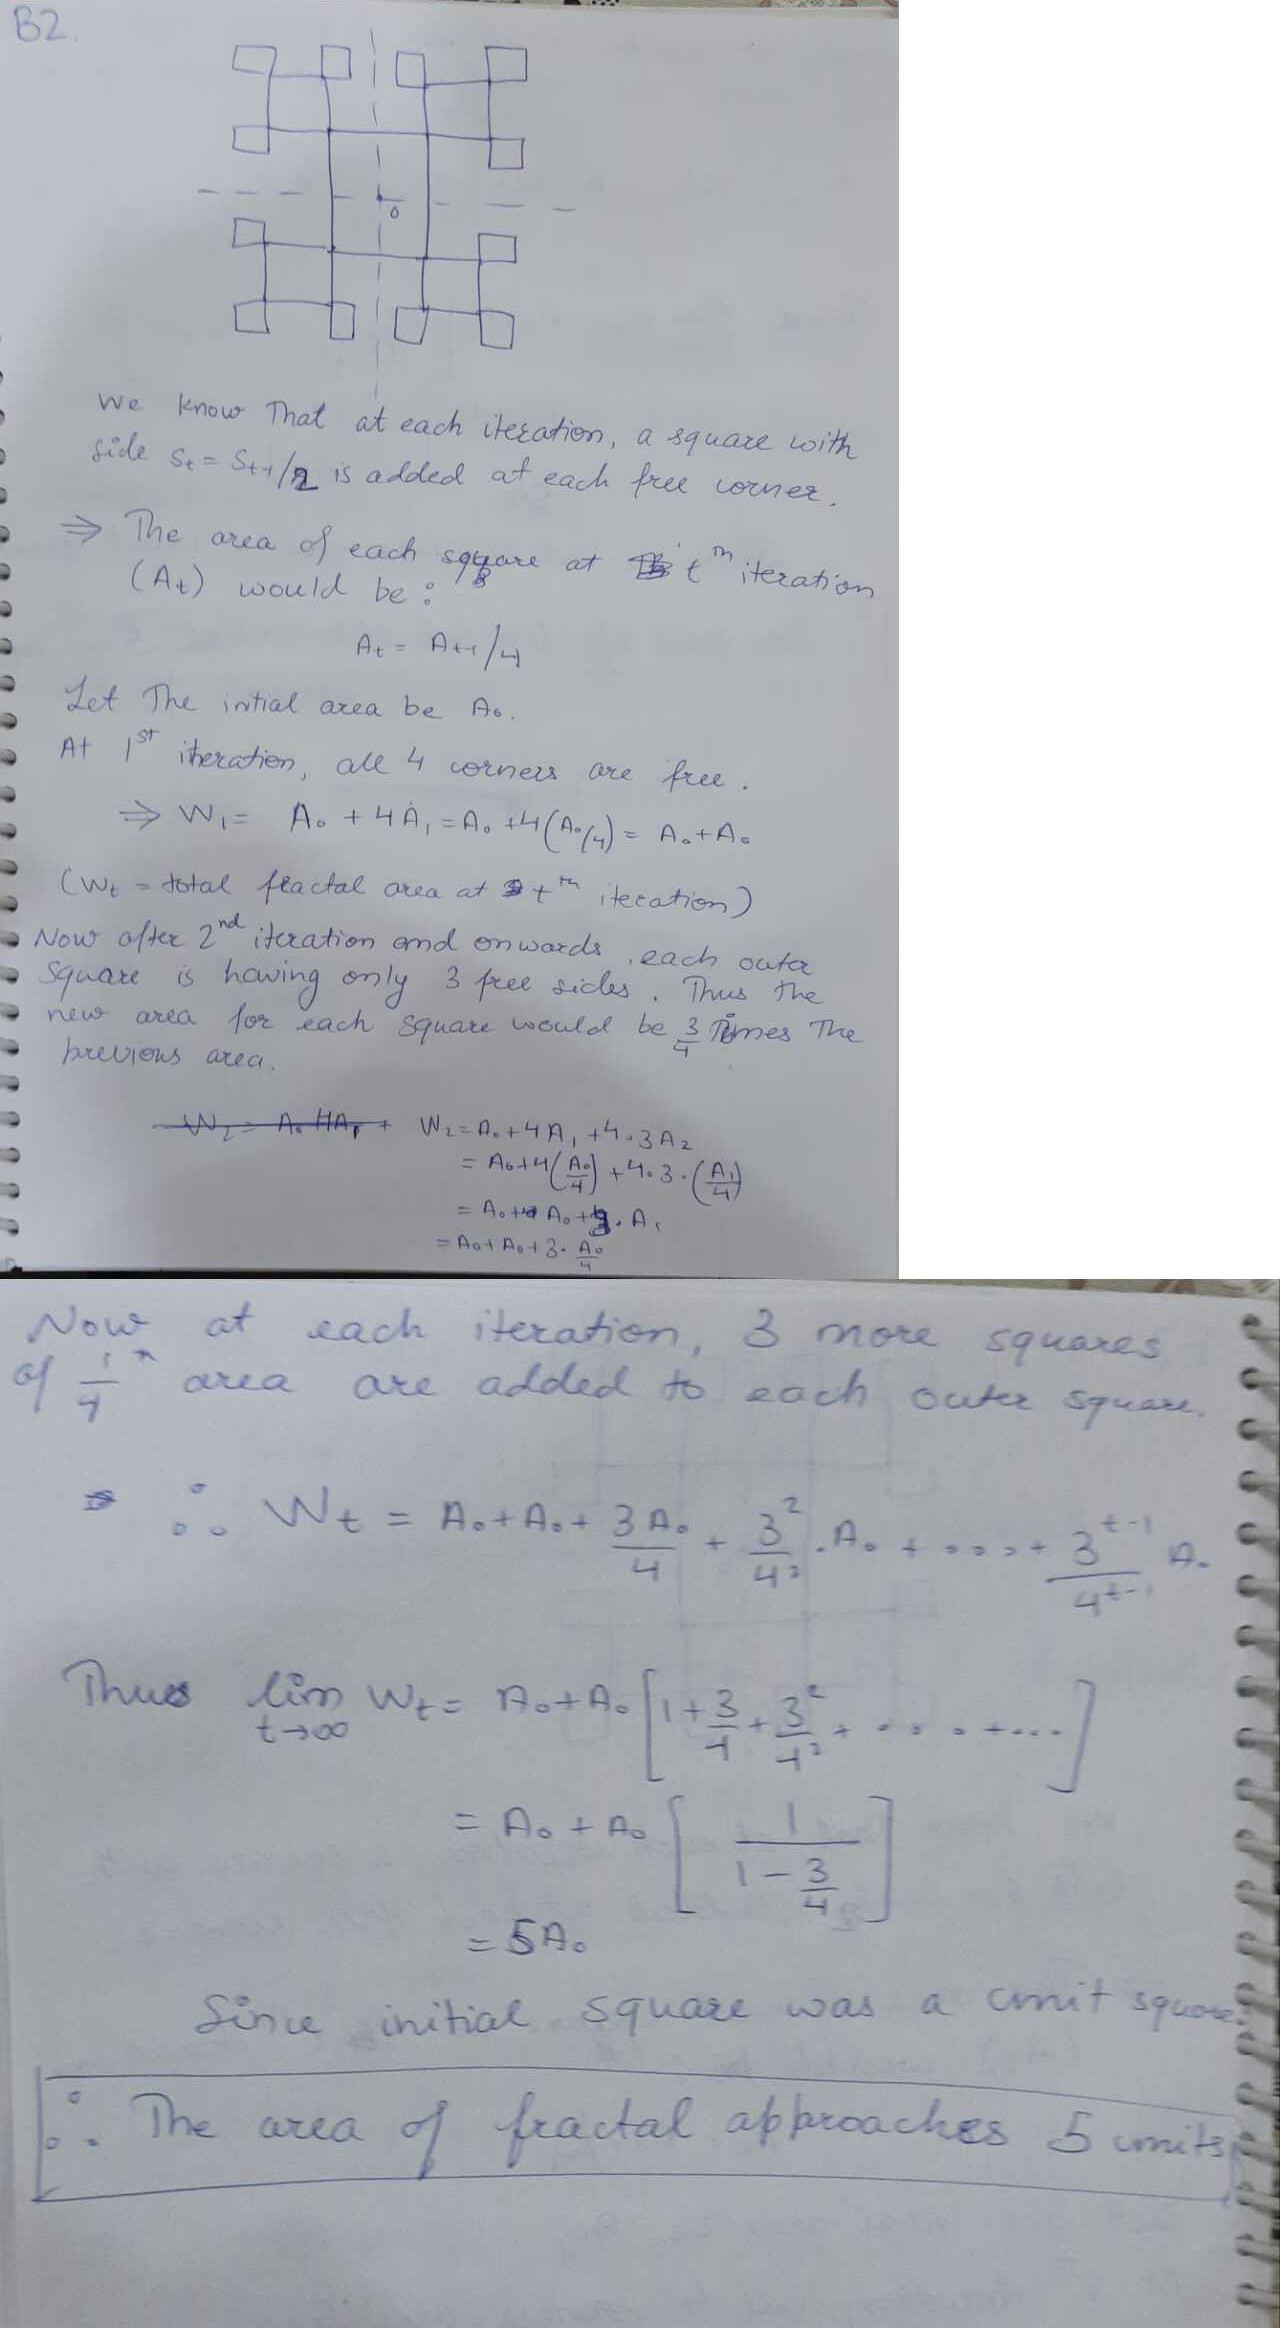 B2.
0
We know That at each iteration, a square with
side St = St-1/2 is added at each free corner.
⇒ The area of each square at tth iteration
(At) would be:
At = At-1/4
Let The intial area be A0.
At 1st iteration, all 4 corners are free.
⇒ W1 = A0 + 4A1 = A0 + 4(A0/4) = A0 + A0
(Wt = total fractal area at tth iteration)
Now after 2nd iteration and onwards, each outer
square is having only 3 free sides. Thus the
new area for each square would be 3/4 Times The
previous area.
W2 = A0 + 4A1 + 4.3A2
= A0 + 4(A0/4) + 4.3.(A1/4)
= A0 + A0 + 3.A1
= A0 + A0 + 3.A0/4
Now at each iteration, 3 more squares
of 1/4th area are added to each outer square.
∴ Wt = A0 + A0 + 3A0/4 + 3²/4².A0 + .... + 3^t-1/4^t-1 A0
Thus lim t→∞ Wt = A0 + A0 [1 + 3/4 + 3²/4² + .... + ...]
= A0 + A0 [1/(1 - 3/4)]
= 5A0
Since initial square was a unit square.
∴ The area of fractal approaches 5 units